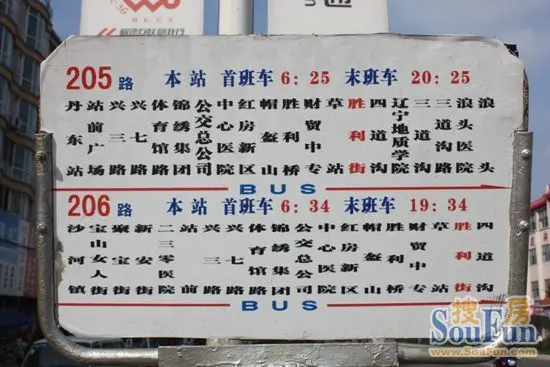 205路 本站 首班车6:25 末班车20:25
丹东站
站前广场
兴一路
兴七路
体育馆路
锦绣集团
公交总公司
中心医院
红房新区
帽盔山
胜利桥
财贸中专
草站
胜利街
四道沟
辽宁地质学院
三道沟
三道路
浪头医院
浪头
BUS
206路 本站 首班车6:34 末班车19:34
沙河镇
宝山女人街
聚宝街
新安街
二三零医院
站前
兴一路
兴七路
体育馆路
锦绣集团
公交总公司
中心医院
红房新区
帽盔山
胜利桥
财贸中专
草站
胜利街
四道沟
BUS
搜房
SouFun
www.SouFun.com